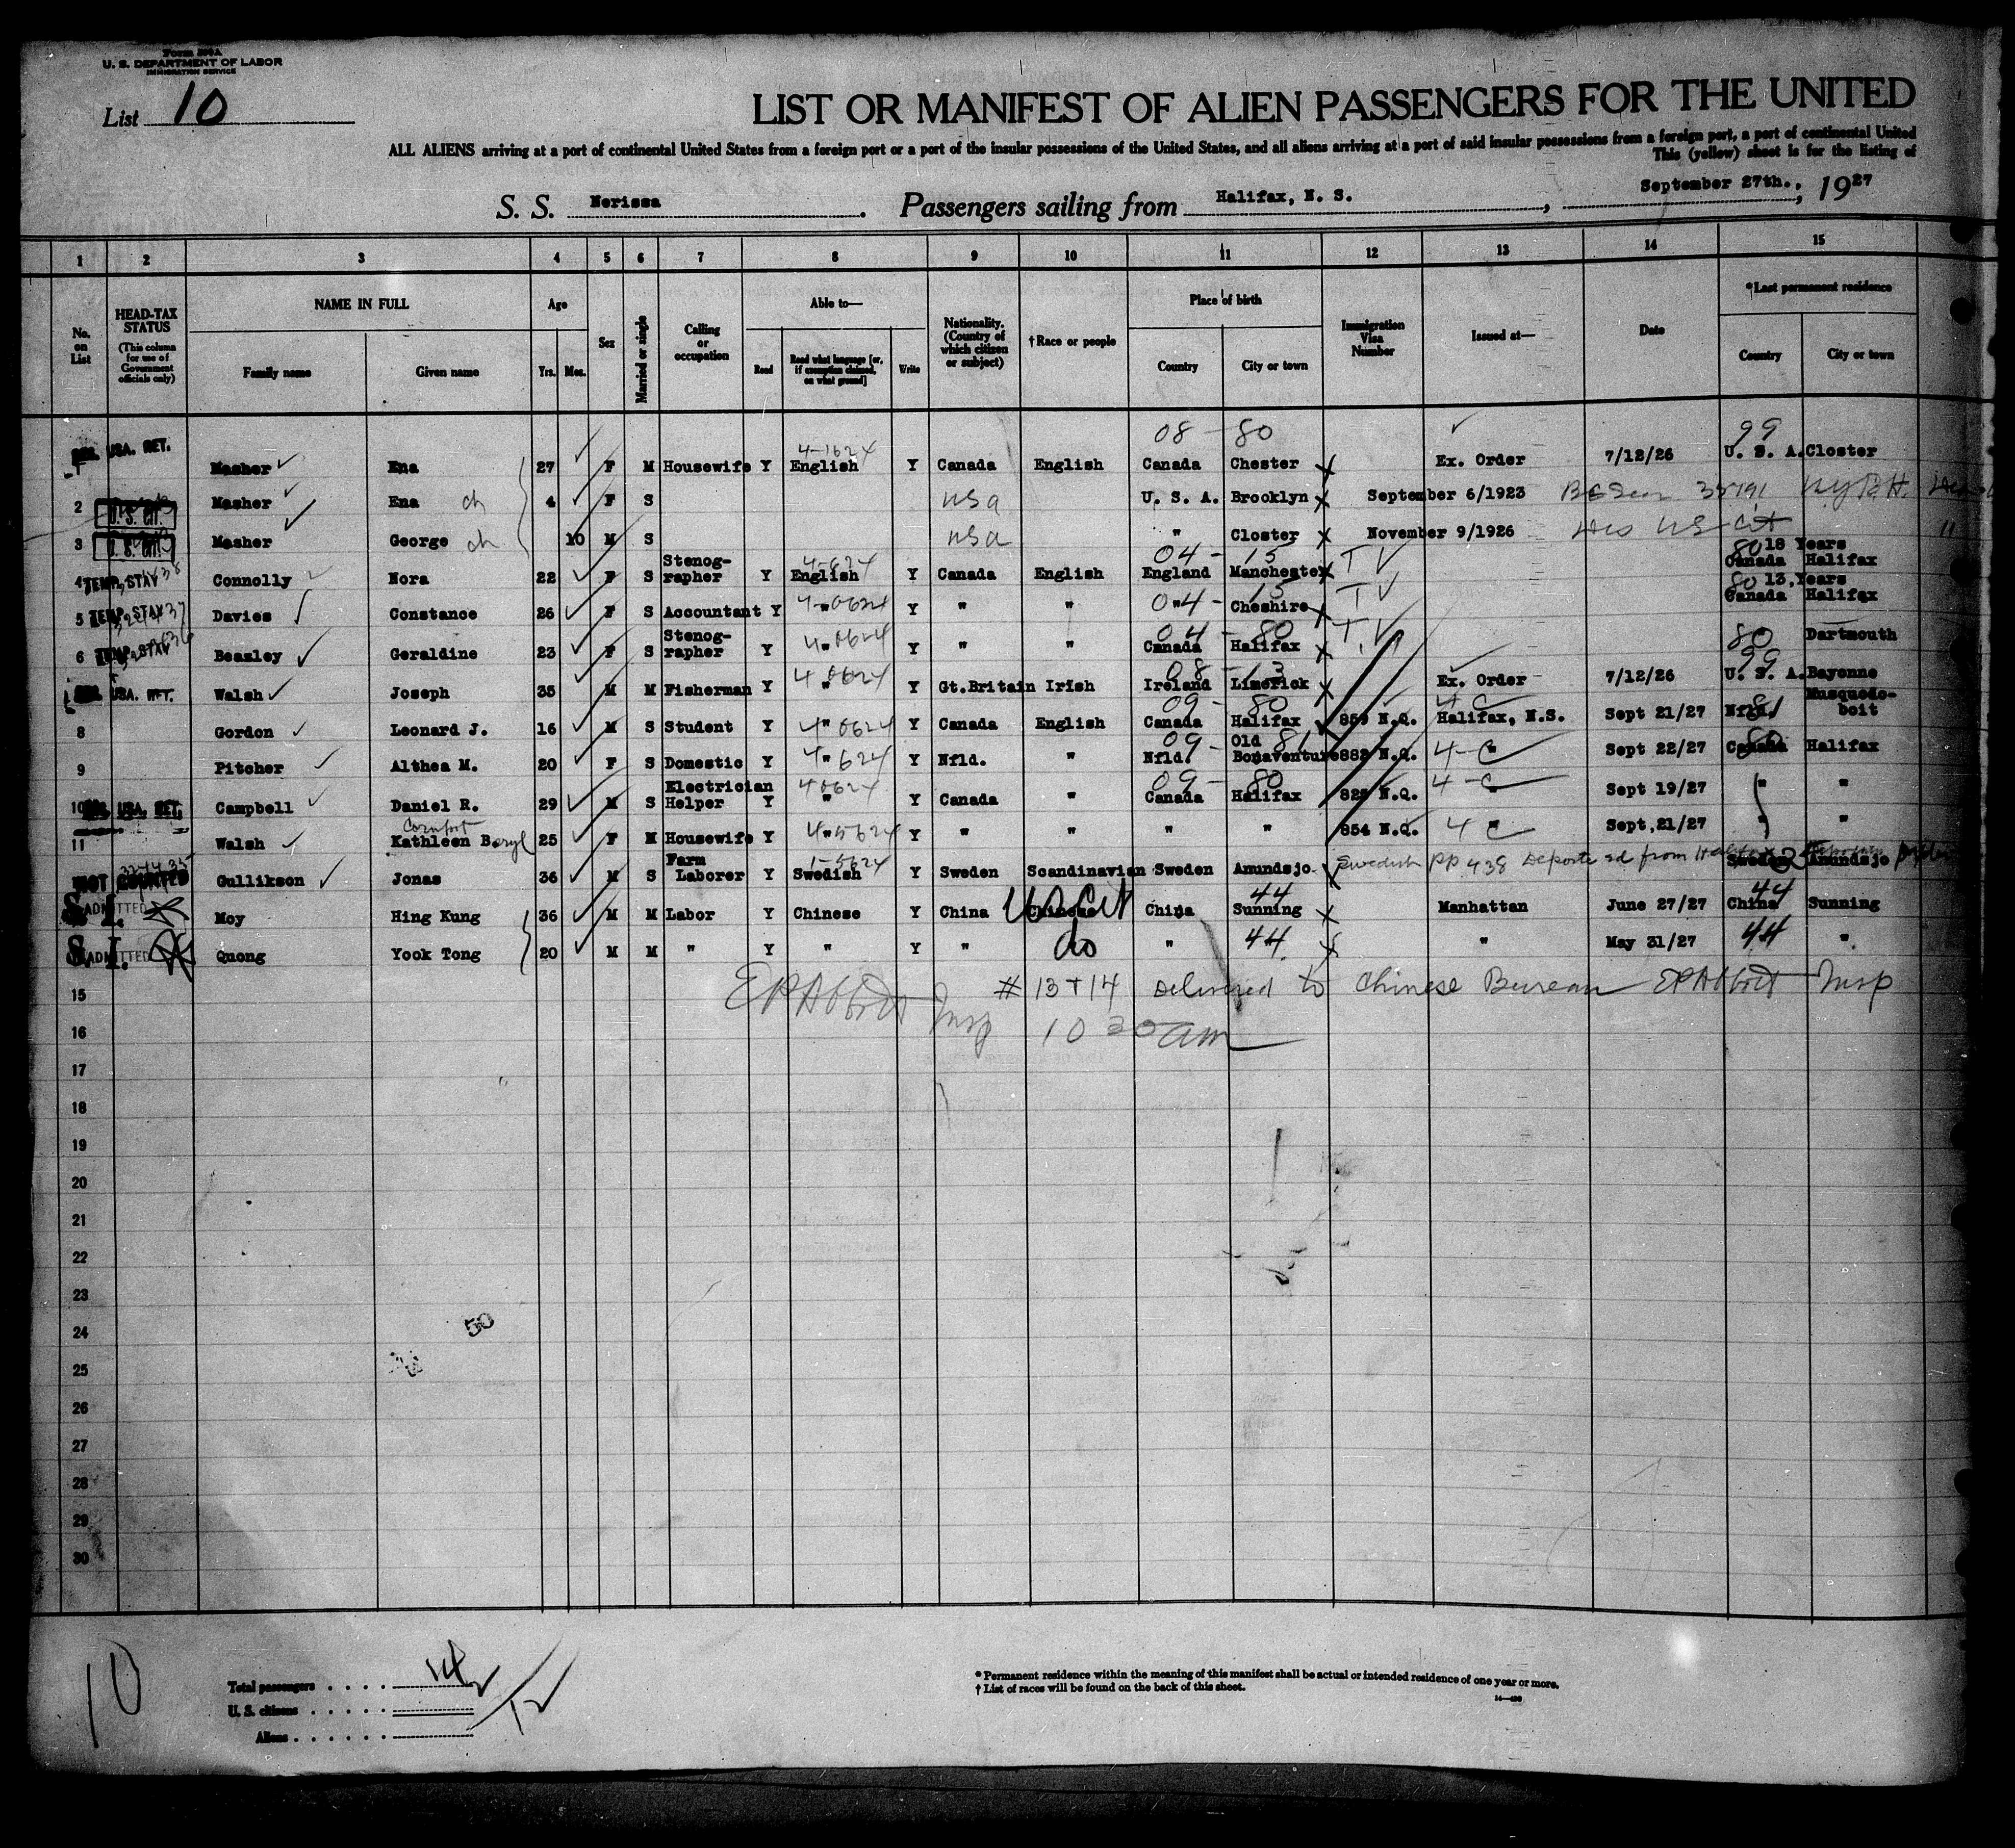 Form 500A
U. S. DEPARTMENT OF LABOR
IMMIGRATION SERVICE
List 10
LIST OR MANIFEST OF ALIEN PASSENGERS FOR THE UNITED
ALL ALIENS arriving at a port of continental United States from a foreign port or a port of the insular possessions of the United States, and all aliens arriving at a port of said insular possessions from a foreign port, a port of continental United
This (yellow) sheet is for the listing of
S. S. Nerissa. Passengers sailing from Halifax, N. S., September 27th., 1927
1 2 3 4 5 6 7 8 9 10 11 12 13 14 15
No. on List
HEAD-TAX STATUS
(This column for use of Government officials only)
NAME IN FULL
Family name Given name
Age
Yrs. Mos.
Sex
Married or single
Calling or occupation
Able to—
Read Read what language [or, if exemption claimed, on what ground] Write
Nationality. (Country of which citizen or subject)
†Race or people
Place of birth
Country City or town
Immigration Visa Number
Issued at—
Date
*Last permanent residence
Country City or town
08 - 80 99
1 USA. RET. Masher Ena 27 F M Housewife Y English 4-1624 Y Canada English Canada Chester Ex. Order 7/12/26 U. S. A. Closter
2 U. S. CIT. Masher Ena ch 4 F S USA U. S. A. Brooklyn September 6/1923
3 U. S. CIT. Masher George ch 10 M S USA " Closter November 9/1926 US Cit "
4 TEMP. STAY Connolly Nora 22 F S Stenographer Y English 4-0624 Y Canada English England Manchester 04 - 15 T V 80 18 Years Canada Halifax
5 TEMP. STAY Davies Constance 26 F S Accountant Y " 4-0624 Y " " " Cheshire 04 - 15 T V 80 13 Years Canada Halifax
6 TEMP. STAY Beazley Geraldine 23 F S Stenographer Y " 4-0624 Y " " Canada Halifax 04 - 80 T.V 80 Dartmouth
USA. RET. Walsh Joseph 35 M M Fisherman Y " 4 0624 Y Gt.Britain Irish Ireland Limerick 08 - 13 Ex. Order 7/12/26 99 U. S. A. Bayonne
8 Gordon Leonard J. 16 M S Student Y " 4 0624 Y Canada English Canada Halifax 09 - 80 859 N.Q. 4-C Halifax, N.S. Sept 21/27 Nfld. 81 Musquodoboit
9 Pitcher Althea M. 20 F S Domestic Y " 4 624 Y Nfld. " Nfld. Old Bonaventure 09 - 81 882 N.Q. 4-C " Sept 22/27 Canada 80 Halifax
10 USA. RET. Campbell Daniel R. 29 M S Electrician Helper Y " 40624 Y Canada " Canada Halifax 09 - 80 N.Q. 4-C Sept 19/27 " "
11 Walsh Kathleen Beryl 25 F M Housewife Y " 4-5624 Y " " " " 854 N.Q. 4 C " Sept.21/27 " "
NOT COUNTED Gullikson Jonas 36 M S Farm Laborer Y Swedish 1-5624 Y Sweden Scandinavian Sweden Amundsjo Swedish PP 438 Deported from Halifax Sweden Amundsjo
S. I. ADMITTED Moy Hing Kung 36 M M Labor Y Chinese Y China Chinese US Cit China Sunning 44 Manhattan June 27/27 China 44 Sunning
S. I. ADMITTED Quong Yook Tong 20 M M " Y " Y " do " 44 " May 31/27 44 "
15 EPAbbott Insp # 13 + 14 Delivered to Chinese Bureau EPAbbott Insp
16 10 30 am
17
18
19
20
21
22
23
24 50
25
26
27
28
29
30
10
Total passengers 14
U. S. citizens
Aliens
12
* Permanent residence within the meaning of this manifest shall be actual or intended residence of one year or more.
† List of races will be found on the back of this sheet.